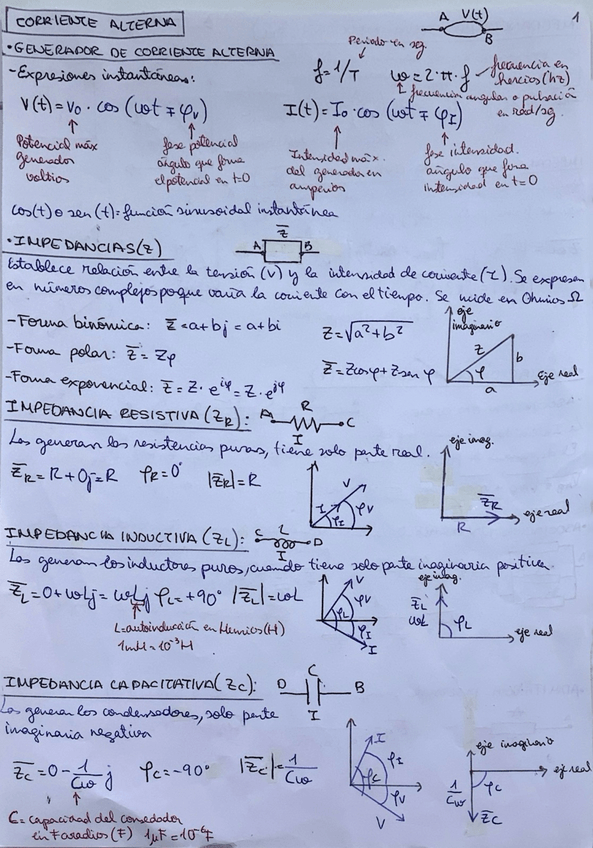 1
CORRIENTE ALTERNA
A V(t) B
• GENERADOR DE CORRIENTE ALTERNA
Periodo en seg.
- Expresiones instantáneas:
f=1/T ω=2·π·f
frecuencia en hercios (hz)
frecuencia angular o pulsación en rad/sg.
V(t)=V₀·cos(ωt∓φᵥ) I(t)=I₀·cos(ωt∓φI)
Potencial máx
generador
voltios
fase potencial
ángulo que forma
el potencial en t=0
Intensidad máx.
del generador en
amperios
fase intensidad.
ángulo que forma
intensidad en t=0
cos(t) o sen(t)=función sinusoidal instantánea
• IMPEDANCIAS(Z)
A Z̅ B
Establece relación entre la tensión (V) y la intensidad de corriente (I). Se expresan
en números complejos porque varía la corriente con el tiempo. Se mide en Ohmios Ω
- Forma binómica: Z̅=a+bj=a+bi Z=√a²+b²
- Forma polar: Z̅=Zφ Z̅=Zcosφ+Zsen φ
- Forma exponencial: Z̅=Z·e^iφ=Z·e^jφ
eje imaginario
Z
b
φ
a
eje real
IMPEDANCIA RESISTIVA (ZR): A R C
I
Las generan las resistencias puras, tiene solo parte real.
Z̅R=R+0j=R φR=0° |Z̅R|=R
I V φI φV
eje imag.
Z̅R
R
eje real
IMPEDANCIA INDUCTIVA (ZL): C L D
I
Las generan los inductores puros, cuando tiene solo parte imaginaria positiva
Z̅L=0+ωLj=ωLj φL=+90° |Z̅L|=ωL
L=autoinducción en Henrios (H)
1mH=10⁻³H
V φL φV φI I
eje imag.
Z̅L
ωL
φL
eje real
IMPEDANCIA CAPACITATIVA (ZC): D C B
I
Las generan los condensadores, solo parte
imaginaria negativa
Z̅C=0-1/Cω j φC=-90° |Z̅C|=1/Cω
C=capacidad del consedador
en Faradios (F) 1μF=10⁻⁶F
I φI φC φV V
eje imaginario
eje real
1/Cω
φC
Z̅C